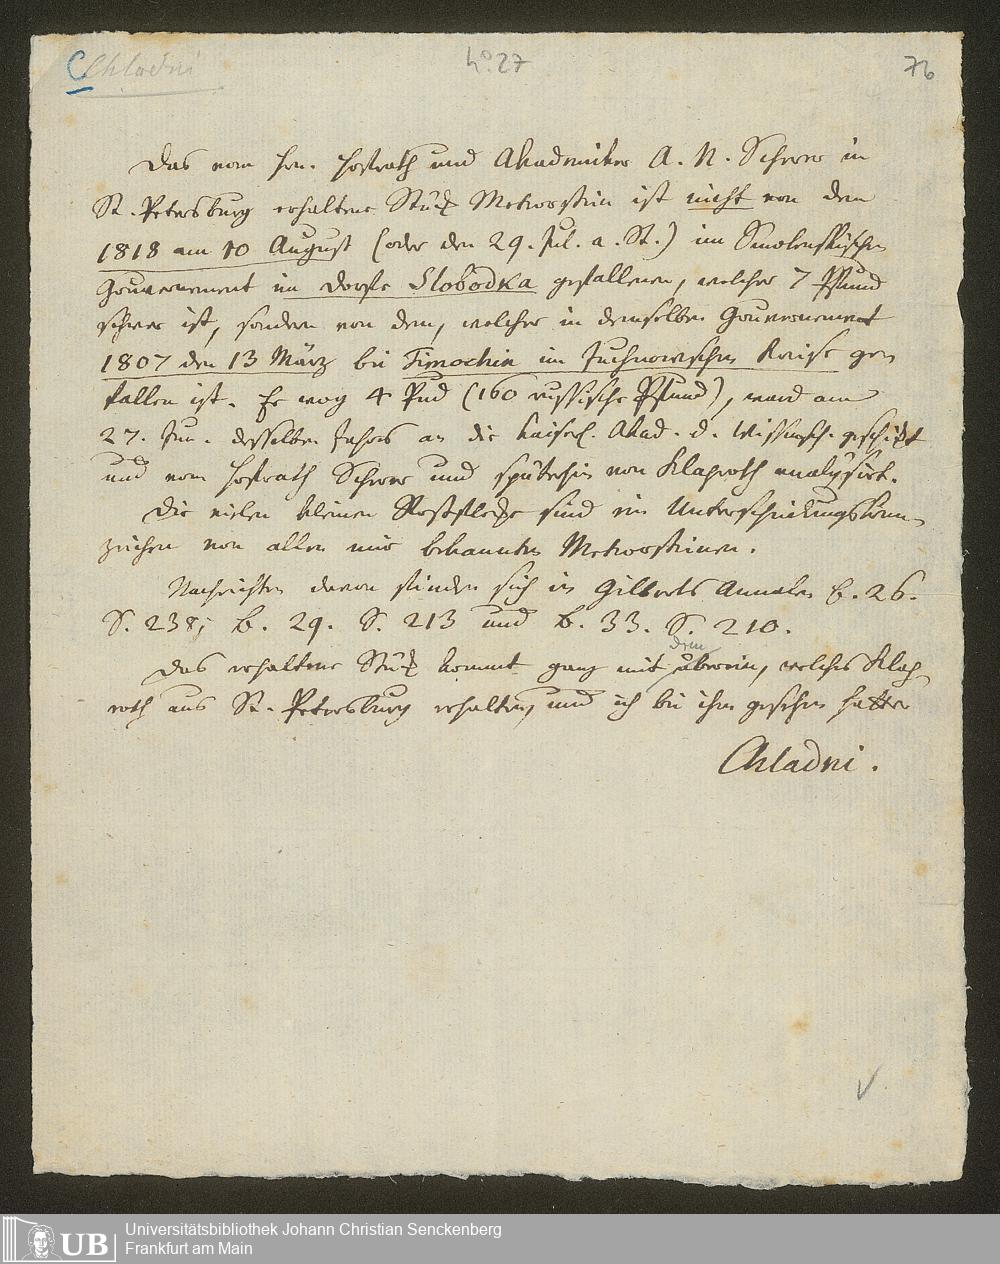 Chladni
No. 27
76
Das vom Hrn. Hofrath und Akademiker A. N. Scherer in
St. Petersburg erhaltene Stück Meteorstein ist nicht von dem
1818 am 10 August (oder den 29. Jul. a. St.) im Smolenskischen
Gouvernement im Dorfe Slobodka gefallenen, welcher 7 Pfund
schwer ist, sondern von dem, welcher in demselben Gouvernement
1807 den 13 März bei Timochin im Juchnowschen Kreise ge-
fallen ist. Er wog 4 Pud (160 russische Pfund), ward am
27. Jun. desselben Jahres an die Kaiserl. Akad. d. Wissensch. geschickt
und vom Hofrath Scherer und späterhin von Klaproth analysirt.
Die vielen kleinen Rostflecke sind ein Unterscheidungskenn-
zeichen von allen mir bekannten Meteorsteinen.
Nachrichten davon finden sich in Gilberts Annalen B. 26.
S. 238; B. 29. S. 213 und B. 33. S. 210.
dem
Das erhaltene Stück kommt ganz mit überein, welches Klap-
roth aus St. Petersburg erhalten, und ich bei ihm gesehen hatte
Chladni.
UB
Universitätsbibliothek Johann Christian Senckenberg
Frankfurt am Main